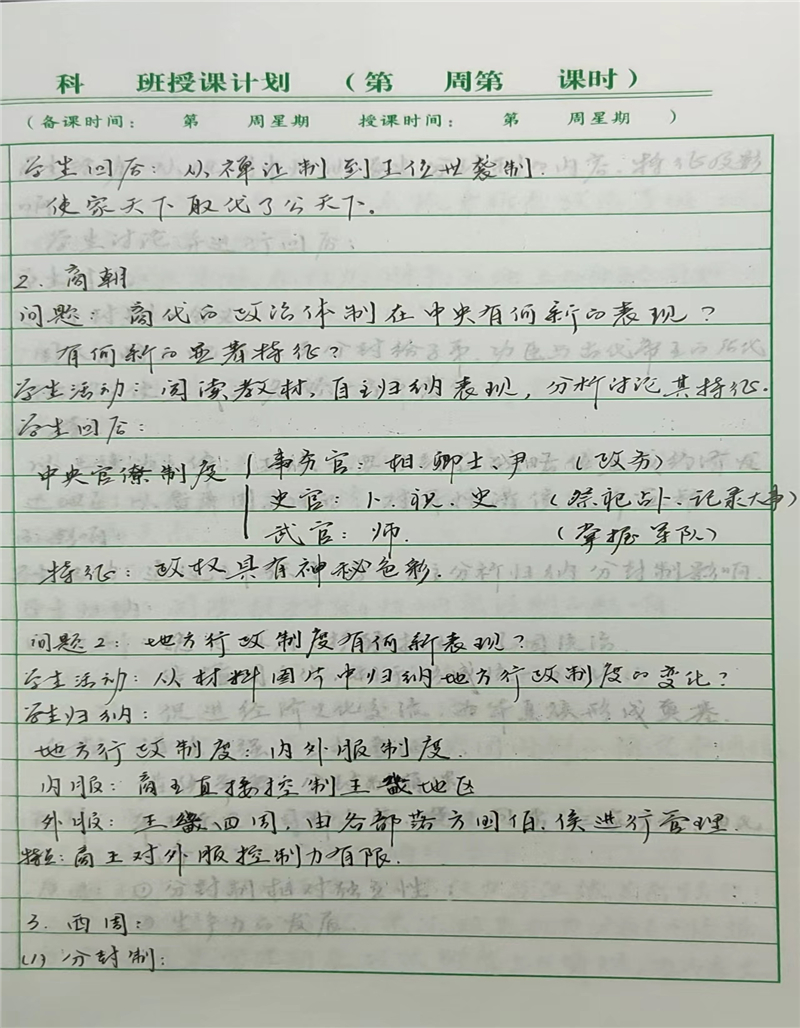 科 班授课计划 （第 周第 课时）
（备课时间： 第 周星期 授课时间： 第 周星期 ）
学生回答：从禅让制到王位世袭制.
使家天下取代了公天下。
2. 商朝
问题：商代的政治体制在中央有何新的表现？
有何新的显著特征？
学生活动：阅读教材，自主归纳表现，分析讨论其特征.
学生回答：
中央官僚制度 { 事务官：相、卿士、尹 （政务）
史官：卜、祝、史 （祭祀占卜、记录大事）
武官：师. （掌握军队）
特征：政权具有神秘色彩.
问题2：地方行政制度有何新表现？
学生活动：从材料图片中归纳地方行政制度的变化？
学生归纳：
地方行政制度：内外服制度.
内服：商王直接控制王畿地区
外服：王畿四周，由各部落方国伯、侯进行管理.
特点：商王对外服控制力有限.
3. 西周：
(1) 分封制：